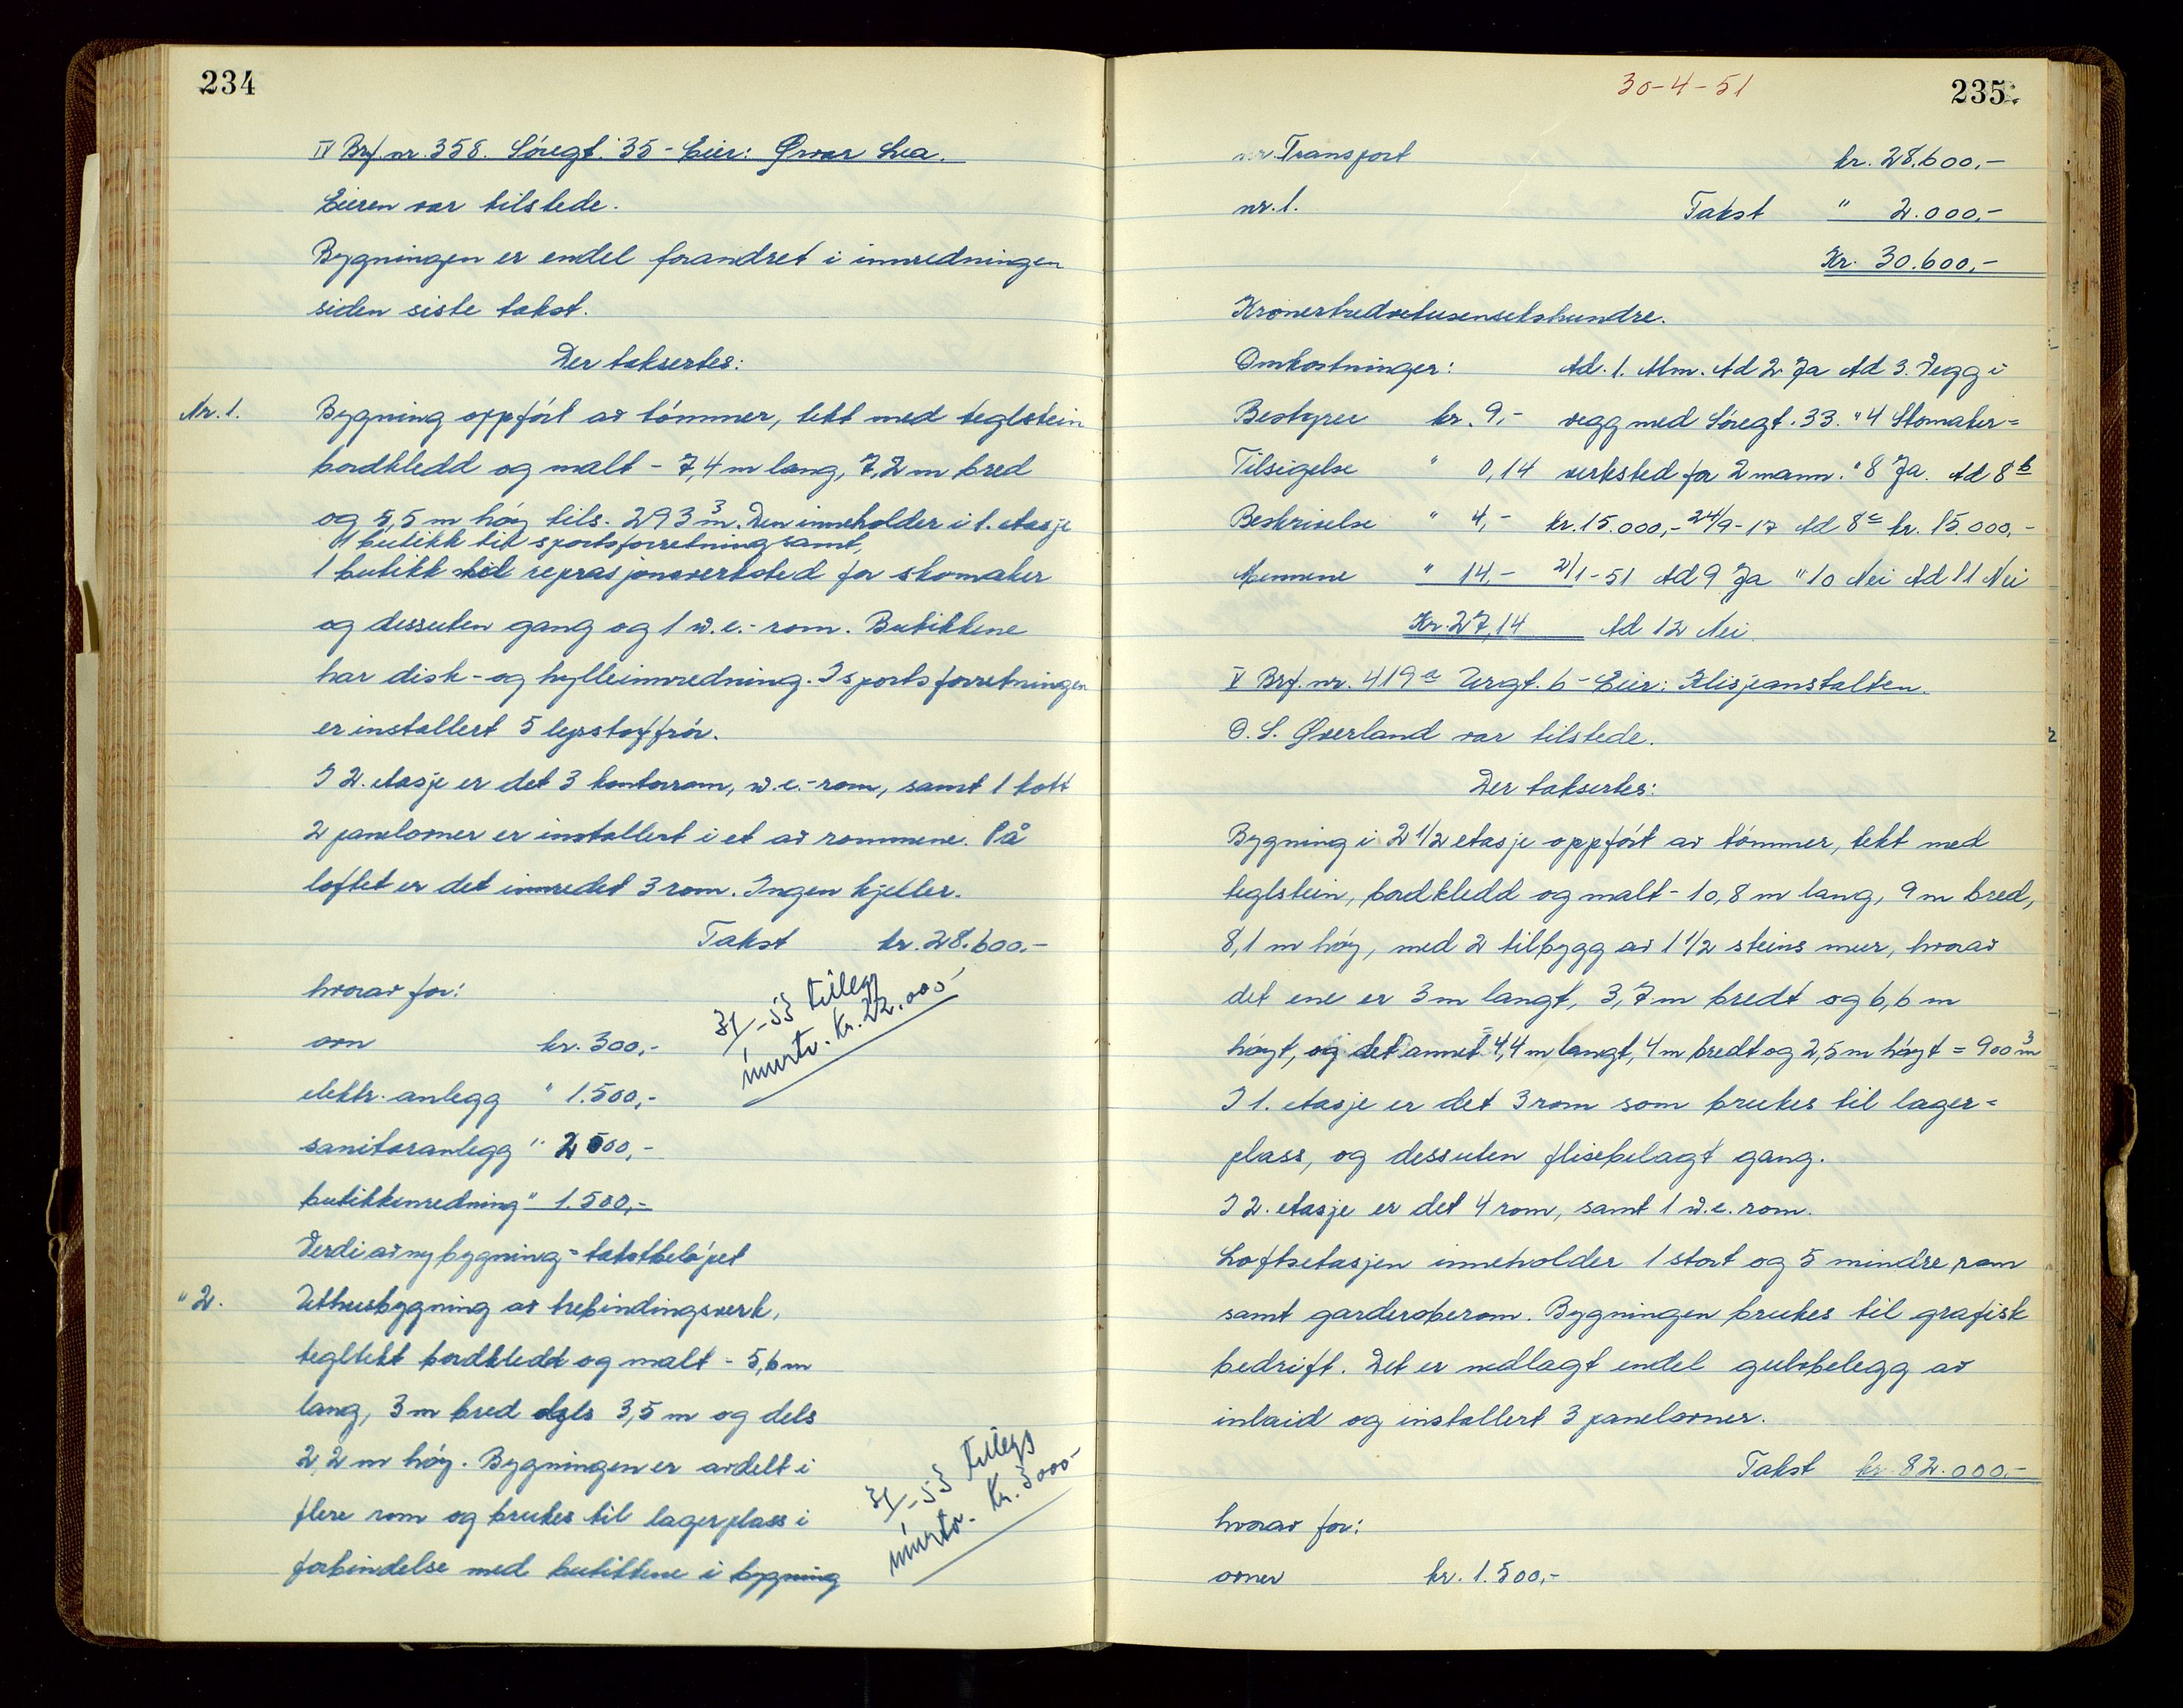 234
IV Brf. nr. 358. Söregt. 35 - Eier: Ørvar Lea.
Eieren var tilstede.
Bygningen er endel forandret i innredningen
siden siste takst.
Der taksertes:
Nr. 1. Bygning oppfört av tömmer, tekt med teglstein
bordkledd og malt - 7,4 m lang, 7,2 m bred
og 5,5 m höy tils. 293 m³. Den inneholder i 1. etasje
1 butikk til sportsforretning samt,
1 butikk med reprasjonsverksted for skomaker
og dessuten gang og 1 w.c.-rom. Butikkene
har disk- og hylleinnredning. I sportsforretningen
er installert 5 lysstoffrör.
I 2. etasje er det 3 kontorrom, w.c.-rom, samt 1 kott
2 panelovner er installert i et av rommene. På
loftet er det innredet 3 rom. Ingen kjeller.
Takst kr. 28.600.-
hvorav for:
ovn kr. 300,-
elektr. anlegg " 1.500,-
sanitæranlegg " 2500,-
butikkinredning " 1.500,-
Verdi av ny bygning = takstbelöpet
3/1-53 tillegg
murtv. kr. 22.000-
" 2. Uthusbygning av trebindingsverk,
tegltekt bordkledd og malt - 5,6 m
lang, 3 m bred dels 3,5 m og dels
2,2 m höy. Bygningen er avdelt i
flere rom og brukes til lagerplass i
forbindelse med butikkene i bygning
3/1-53 tillegg
murtv. kr. 3000-
30-4-51
235
Transport kr. 28.600,-
nr. 1. Takst " 2.000,-
Kr. 30.600,-
Kronertredvetusensekshundre.
Omkostninger: Ad. 1. Alm. Ad 2 Ja Ad 3. Vegg i
Bestyrer kr. 9,- vegg med Söregt. 33. " 4 Skomaker=
Tilsigelse " 0,14 verksted for 2 mann. " 8 Ja. Ad 8 b
Beskrivelse " 4,- kr. 15.000,- 24/9-17 Ad 8 c kr. 15.000,-
Mennene " 14,- 2/1-51 Ad 9 Ja " 10 Nei Ad 11 Nei
Kr. 27,14 Ad 12 Nei.
V Brf. nr. 419 a Urgt. 6 - Eier: Klisjeanstalten.
O. S. Øverland var tilstede.
Der taksertes:
Bygning i 2 1/2 etasje oppfört av tömmer, tekt med
teglstein, bordkledd og malt - 10,8 m lang, 9 m bred,
8,1 m höy, med 2 tilbygg av 1 1/2 steins mur, hvorav
det ene er 3 m langt, 3,7 m bredt og 6,6 m
höyt, og det annet 4,4 m langt, 4 m bredt og 2,5 m höyt = 900 m³
I 1. etasje er det 3 rom som brukes til lager=
plass, og dessuten flisebelagt gang.
I 2. etasje er det 4 rom, samt 1 w.c. rom.
Loftsetasjen inneholder 1 stort og 5 mindre rom
samt garderoberom. Bygningen brukes til grafisk
bedrift. Det er nedlagt endel gulvbelegg av
inlaid og installert 3 panelovner.
Takst kr. 82.000,-
hvorav for:
ovner kr. 1.500,-